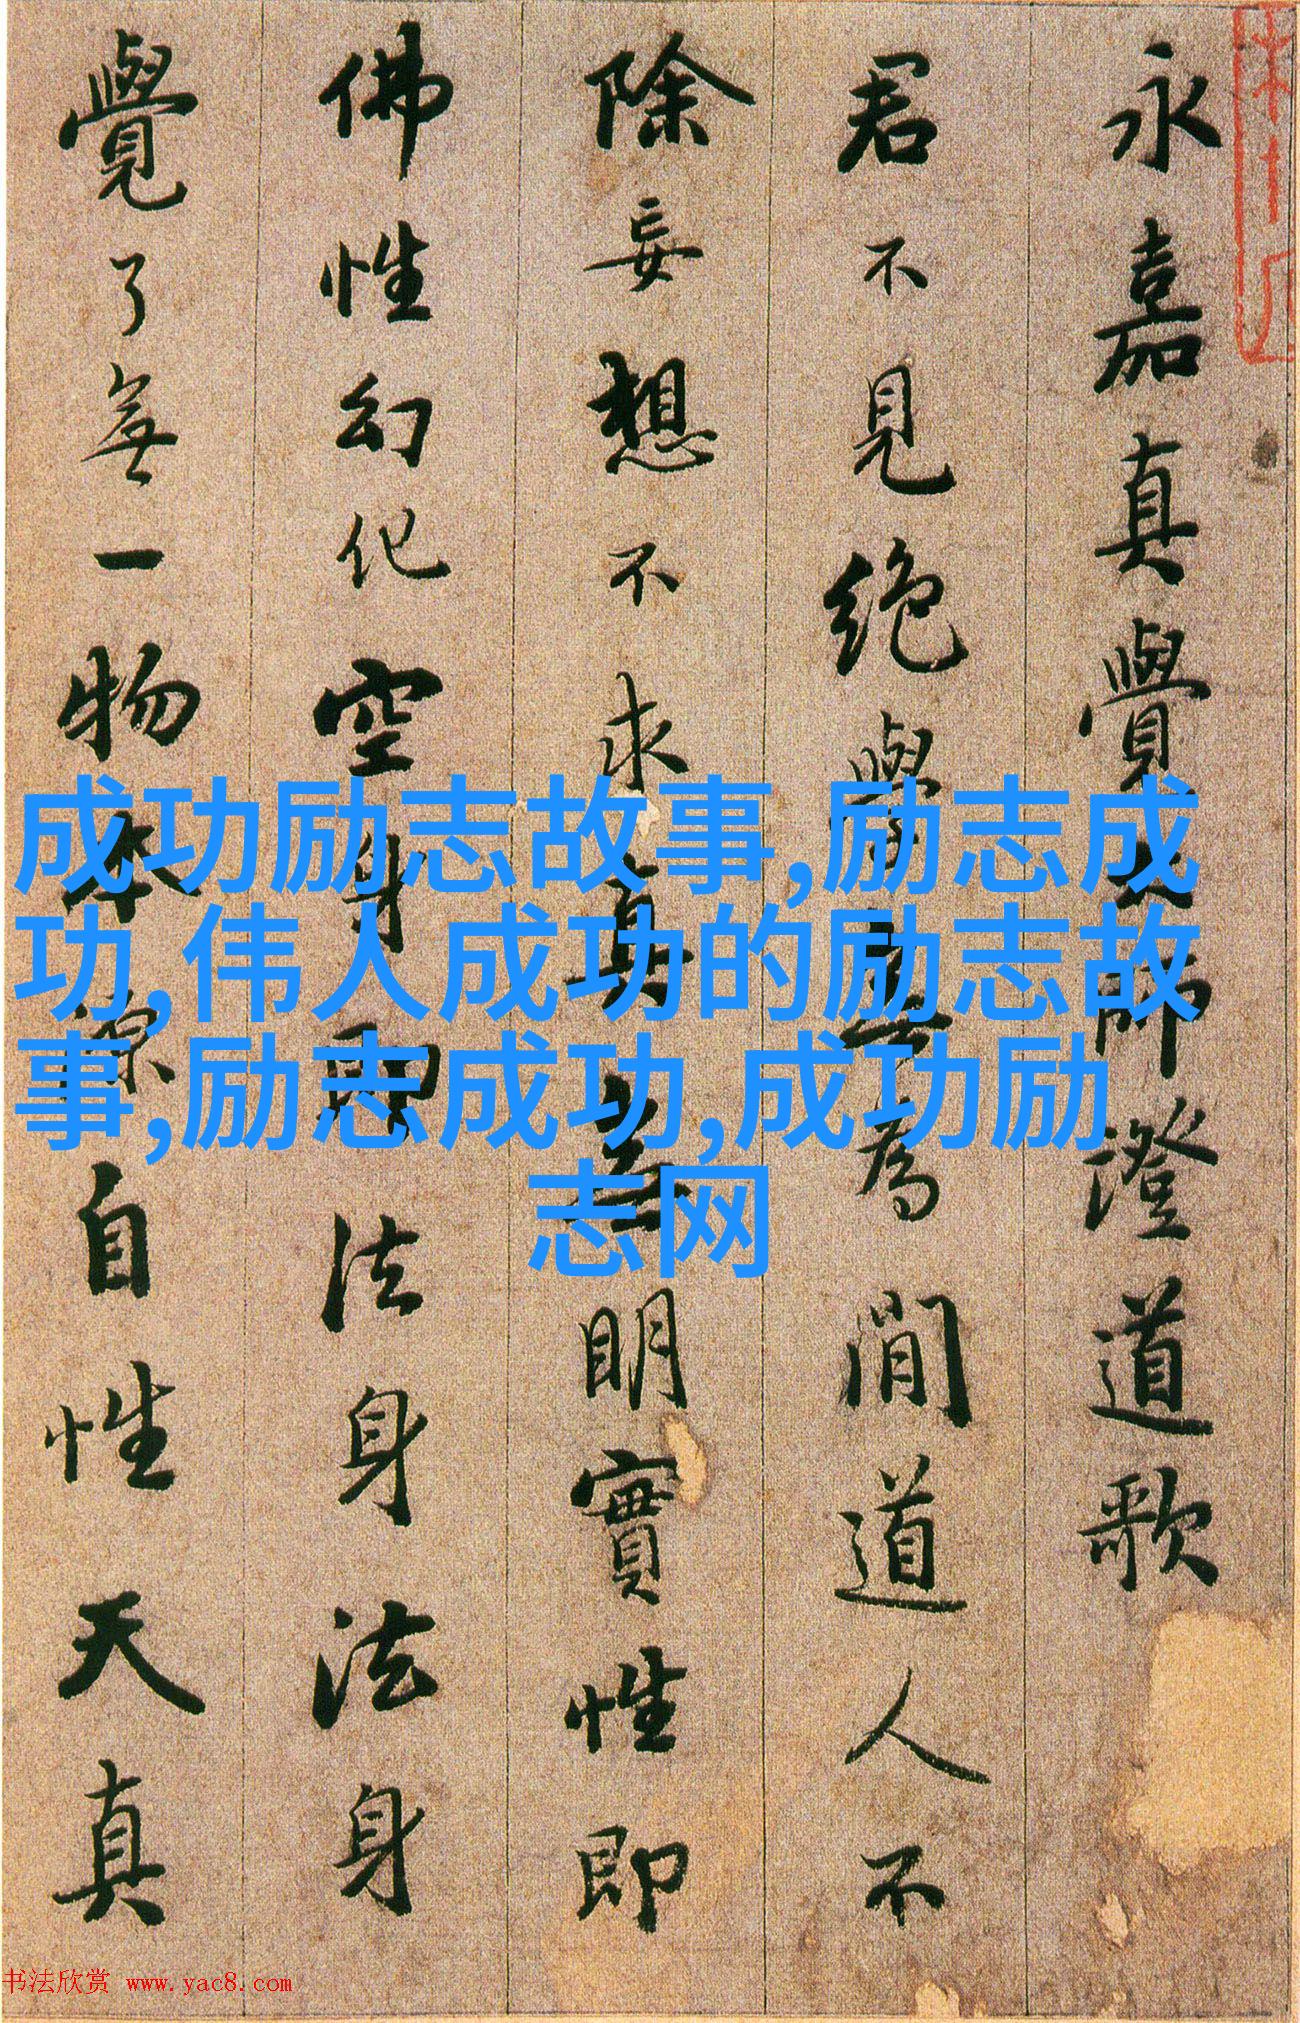 永嘉真覺大師澄道歌
君不見絕學無為閒道人不
除妄想不求真無明實性即
佛性幻化空身即法身法身
覺了無一物本源自性天真
成功励志故事,励志成
功,伟人成功的励志故
事,励志成功,成功励
志网
书法欣赏 www.yac8.com